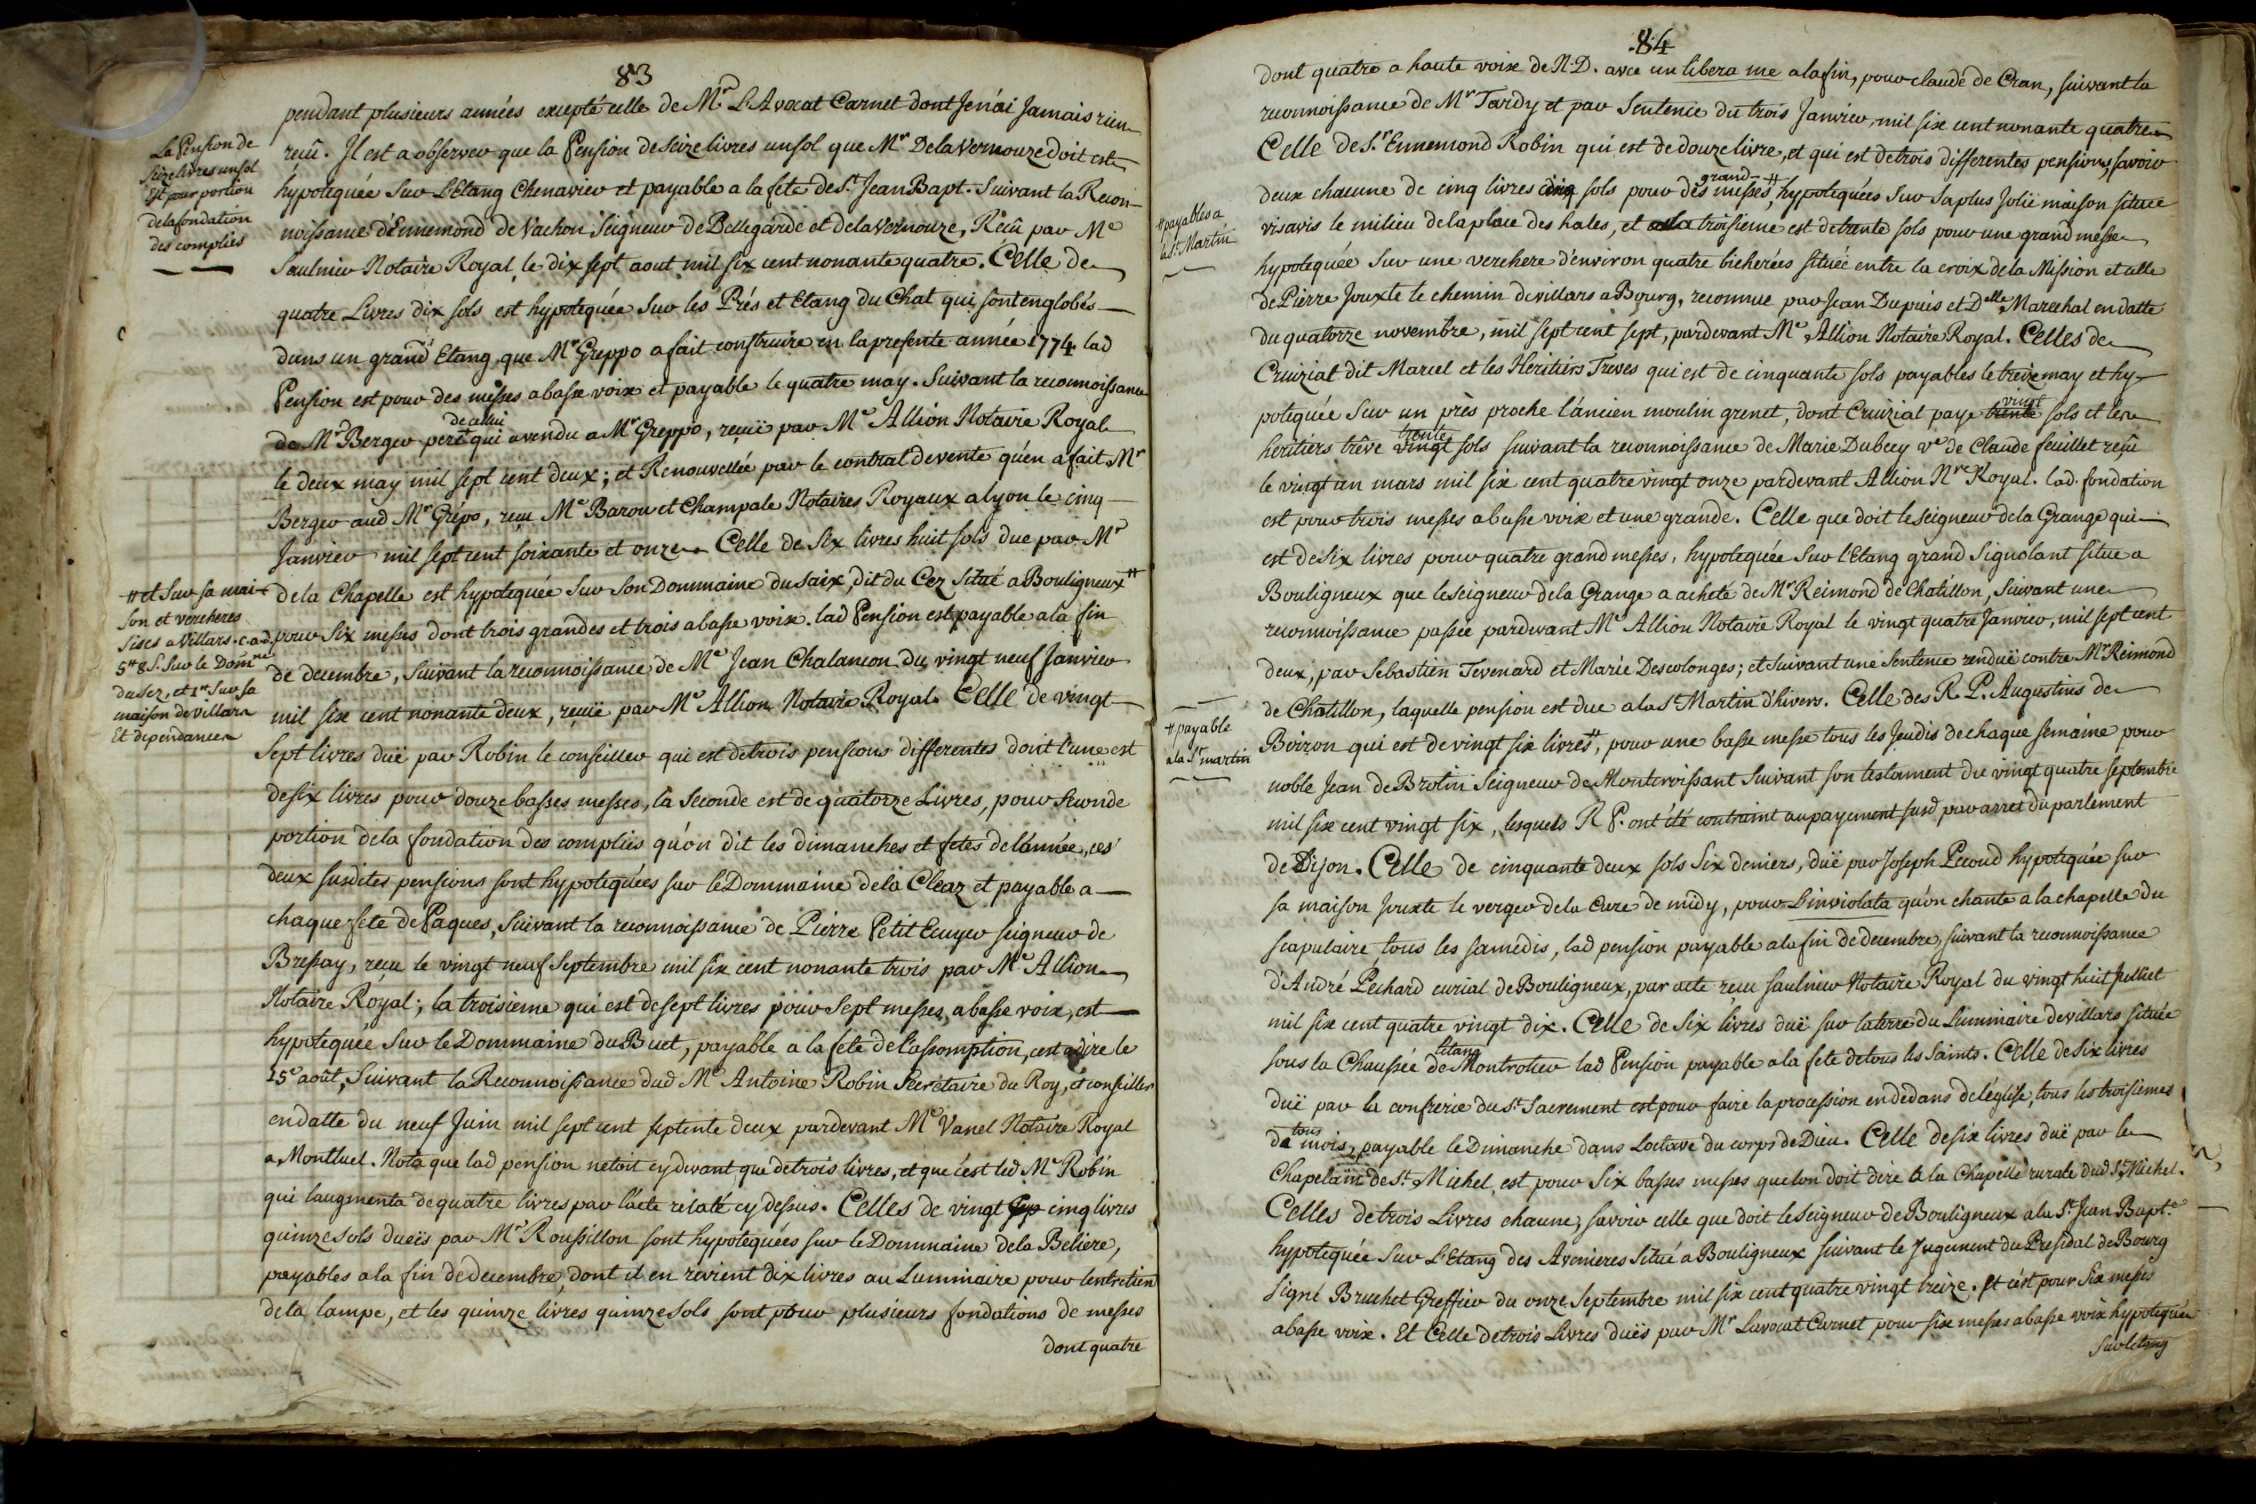 83
pendant plusieurs années excepté celle de Mr L'Avocat Carnet dont Jen'ai Jamais rien
recû. Il est a observer que la Pension de Seize livres un sol que Mr De la Vernouze doit est
hypotequée Sur L'Etang Chenavier et payable a la fete de St. Jean Bapt. Suivant la Recon-
noissance d'Ennemond de Vachon Seigneur de Bellegarde et de la Vernouze, Récû par Me
Saulnier Notaire Royal, le dix sept aout mil six cent nonante quatre. Celle de
quatre Livres dix sols est hypotequée Sur les Prés et Etang du Chat qui sont englobés
dans un grand Etang que Mr Greppo a fait construire en la presente année 1774 lad
Pension est pour des messes a basse voix et payable le quatre may. Suivant la reconnoissance
de celui
de Mr Berger pere qui a vendu a Mr Greppo, reçuë par Me Allion Notaire Royal
le deux may mil sept cent deux; et Renouvellée par le contrat de vente qu'en a fait Mr
Berger aud Mr Grépo, reçu Me Baron et Champale Notaires Royaux a lyon le cinq
Janvier mil sept cent soixante et onze. Celle de Six livres huit sols due par Mr
de la Chapelle est hypotequée Sur Son Dommaine du saix, dit du Cez Situé a Bouligneux #
pour Six messes dont trois grandes et trois a basse voix. lad Pension est payable a la fin
de decembre, suivant la reconnoissance de Me Jean Chalancon du vingt neuf Janvier
mil six cent nonante deux, reçuë par Me Allion Notaire Royal. Celle de vingt
Sept livres duë par Robin le conseiller qui est de trois pensions differentes dont l'une est
de six livres pour douze basses messes, la Seconde est de quatorze Livres, pour Seconde
portion de la fondation des complies qu'on dit les dimanches et fetes de l'année, ces
deux susdites pensions sont hypotequées sur le Dommaine de la Cleaz et payable a
chaque fete de Paques, Suivant la reconnoissance de Pierre Petit Ecuyer seigneur de
Bressay, reçu le vingt neuf Septembre mil six cent nonante trois par Me Allion
Notaire Royal; la troisieme qui est de sept livres pour Sept messes, a basse voix, est
hypotequée Sur le Dommaine du Buet, payable a la fete de l'assomption, cest adire le
15e août, Suivant la Reconnoissance dud Me Antoine Robin Secretaire du Roy, et conseiller
en datte du neuf Juin mil sept cent septente deux pardevant Me Vanel Notaire Royal
a Montluel. Nota que lad pension n'etoit cy devant que de trois livres, et que c'est led Me Robin
qui l'augmenta de quatre livres par l'acte relaté cy dessus. Celles de vingt cinq livres
quinze sols duës par Mr Roussillon sont hypotequées sur le Dommaine de la Beliere,
payables a la fin de decembre, dont il en revient dix livres au Luminaire pour l'entretien
de la lampe, et les quinze livres quinze sols sont pour plusieurs fondations de messes
dont quatre
La Pension de
Seize livres un sol
Est pour portion
de la fondation
des complies
# et Sur sa mai-
son et vercheres
sises a Villars. c.a.d.
5# 8 S. Sur le Domne
du Sez, et 1# Sur sa
maison de villars
Et dependances
84
dont quatre a haute voix de N.D. avec un libera me a la fin, pour claude de Cran, suivant la
reconnoissance de Mr Tardy et par Sentence du trois Janvier, mil six cent nonante quatre
Celle de Sr. Ennemond Robin qui est de douze livre, et qui est de trois differentes pensions, savoir
grand
deux chacune de cinq livres cinq sols pour des messes #, hypotequées Sur Sa plus Jolie maison située
visavis le milieu de la place des hales, et la troisieme est de trente sols pour une grand messe
hypotequée Sur une verchere d'environ quatre bicherées située entre la croix de la Mission et celle
de Pierre Jouxte le chemin de villars a Bourg, reconnue par Jean Dupuis et Delle Marechal en datte
du quatorze novembre, mil sept cent sept, pardevant Me Allion Notaire Royal. Celles de
Cruiziat dit Marcel et les Héritiers Treves qui est de cinquante sols payables le treize may et hy-
vingt
potequée Sur un près proche l'ancien moulin grenet, dont Cruizial paye trente sols et les
trente
heritiers trêve vingt sols suivant la reconnoissance de Marie Dubecy ve de Claude feuillet reçû
le vingt un mars mil six cent quatre vingt onze pardevant Allion Nre Royal. lad. fondation
est pour trois messes a basse voix et une grande. Celle que doit le Seigneur de la Grange qui
est de Six livres pour quatre grand messes, hypotequée Sur l'Etang grand Signolant situe a
Bouligneux que le Seigneur de la Grange a acheté de Mr Reimond de Chatillon, Suivant une
reconnoissance passée pardevant Me Allion Notaire Royal le vingt quatre Janvier, mil sept cent
deux, par Sebastien Tevenard et Marie Descolonges; et Suivant une Sentence renduë contre Mr Reimond
de Chatillon, laquelle pension est due a la St Martin d'hivers. Celle des R. P. Augustins de
Boizon qui est de vingt six livres #, pour une basse messe tous les Jeudis de chaque semaine pour
noble Jean de Brotin Seigneur de Montcroissant Suivant son testament du vingt quatre septembre
mil six cent vingt six, lesquels R P. ont été contraint au payement susd par arret du parlement
de Dijon. Celle de cinquante deux sols Six deniers, duë par Joseph Pecoud hypotequée sur
sa maison Jouxte le verger de la Cure de midy, pour L'inviolata qu'on chante a la chapelle du
scapulaire tous les samedis, lad pension payable a la fin de decembre, suivant la reconnoissance
d'André Pechard curial de Bouligneux, par acte reçu Saulnier Notaire Royal du vingt huit Juillet
mil six cent quatre vingt dix. Celle de Six livres duë sur la terre du Luminaire de villars située
l'étang
sous la Chaussée de Montrotier lad Pension payable a la fete de tous les Saints. Celle de six livres
duë par la confrerie du St. Sacrement est pour faire la procession en dedans de l'église, tous les troisiemes
tous
de mois, payable le Dimanche dans l'octave du corps de Dieu. Celle de six livres duë par le
Chapelain de St. Michel, est pour Six basses messes que lon doit dire a la Chapelle rurale dud St Michel.
Celles de trois Livres chacune, savoir celle que doit le Seigneur de Bouligneux a la St Jean Bapte
hypotequée Sur L'Etang des Avenieres Situé a Bouligneux suivant le Jugement du Presidal de Bourg
Signé Bruchet Greffier du onze Septembre mil six cent quatre vingt treize. Et c'est pour Six messes
a basse voix. Et Celle de trois Livres duës par Mr Lavocat Carnet pour six messes a basse voix hypotequée
Sur l'etang
# payables a
la St. Martin
# payable
a la St martin